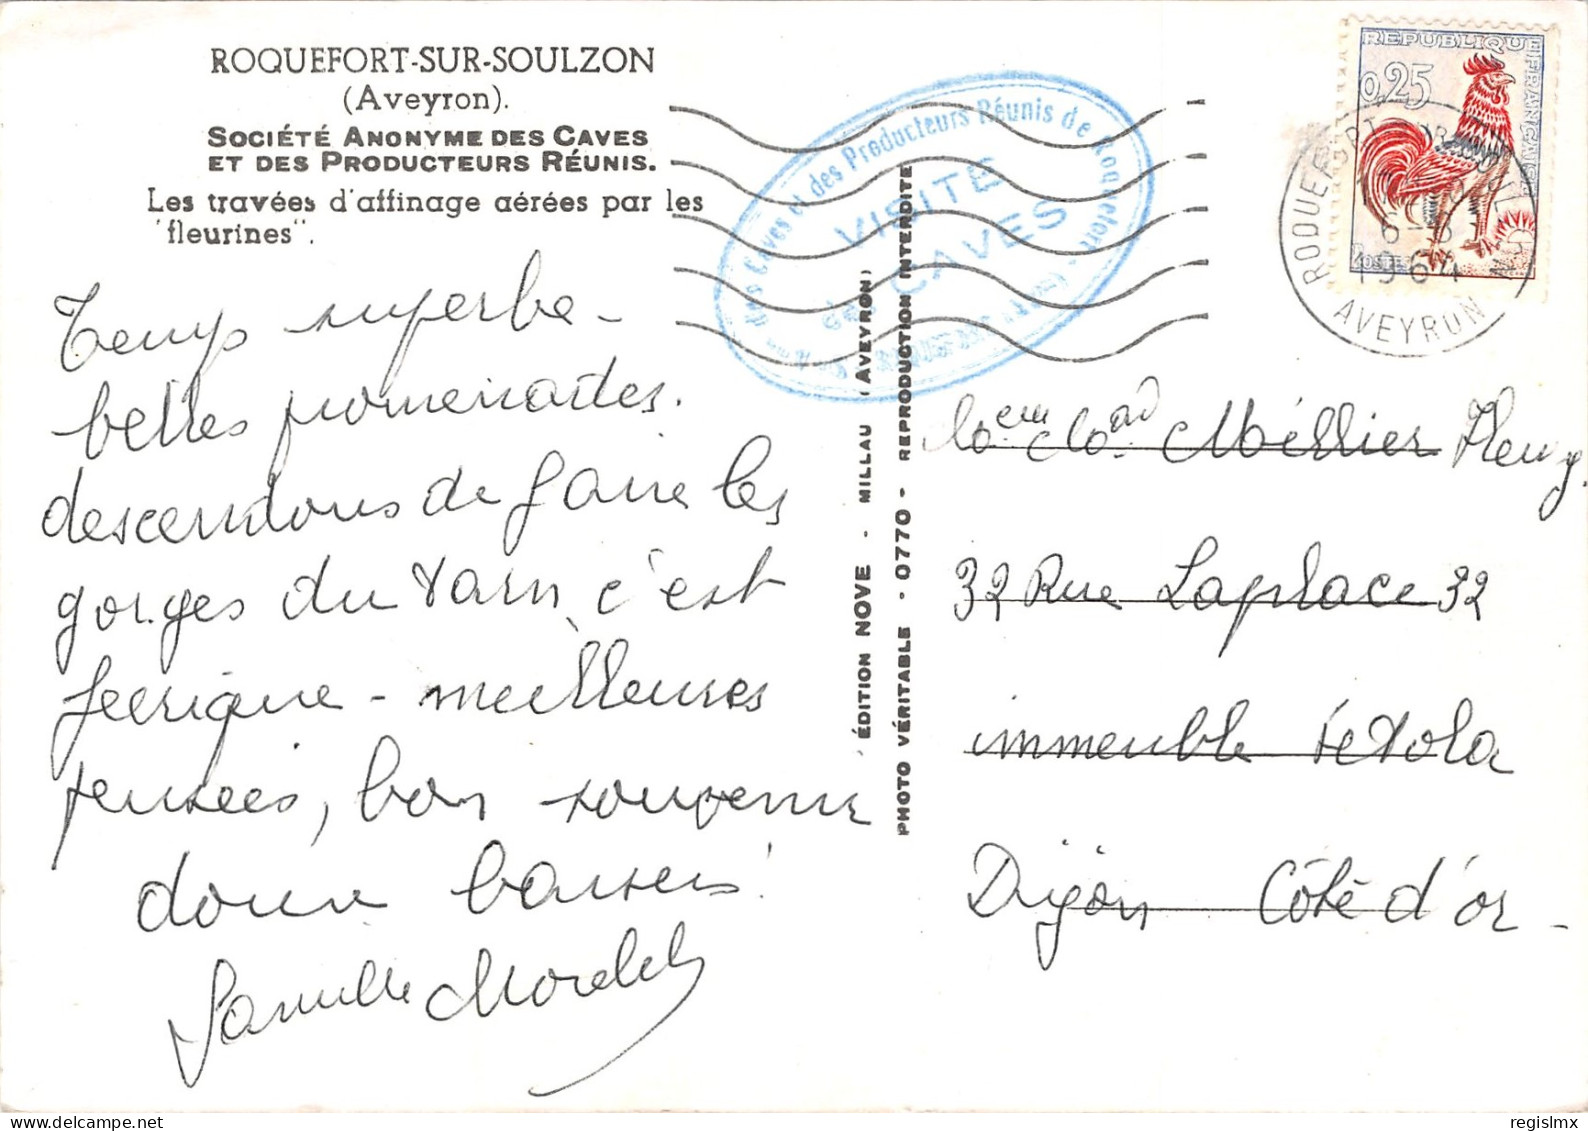 ROQUEFORT-SUR-SOULZON
(Aveyron).
SOCIÉTÉ ANONYME DES CAVES
ET DES PRODUCTEURS RÉUNIS.
Les travées d'affinage aérées par les
"fleurines".
Temps superbe -
belles promenades.
descendons de faire les
gorges du Tarn c'est
féerique - meilleures
pensées, bon souvenir
doux baisers!
Famille
ÉDITION NOVE - MILLAU (AVEYRON)
PHOTO VÉRITABLE - 0770 - REPRODUCTION INTERDITE
des Caves et des Producteurs Réunis de Roquefort
VISITE
des CAVES
REPUBLIQUE FRANÇAISE
0,25
POSTES
ROQUEFORT
1964
AVEYRON
Méllier
32 Rue Laplace 32
immeuble
Dijon Côte d'or -
delcampe.net
regislmx